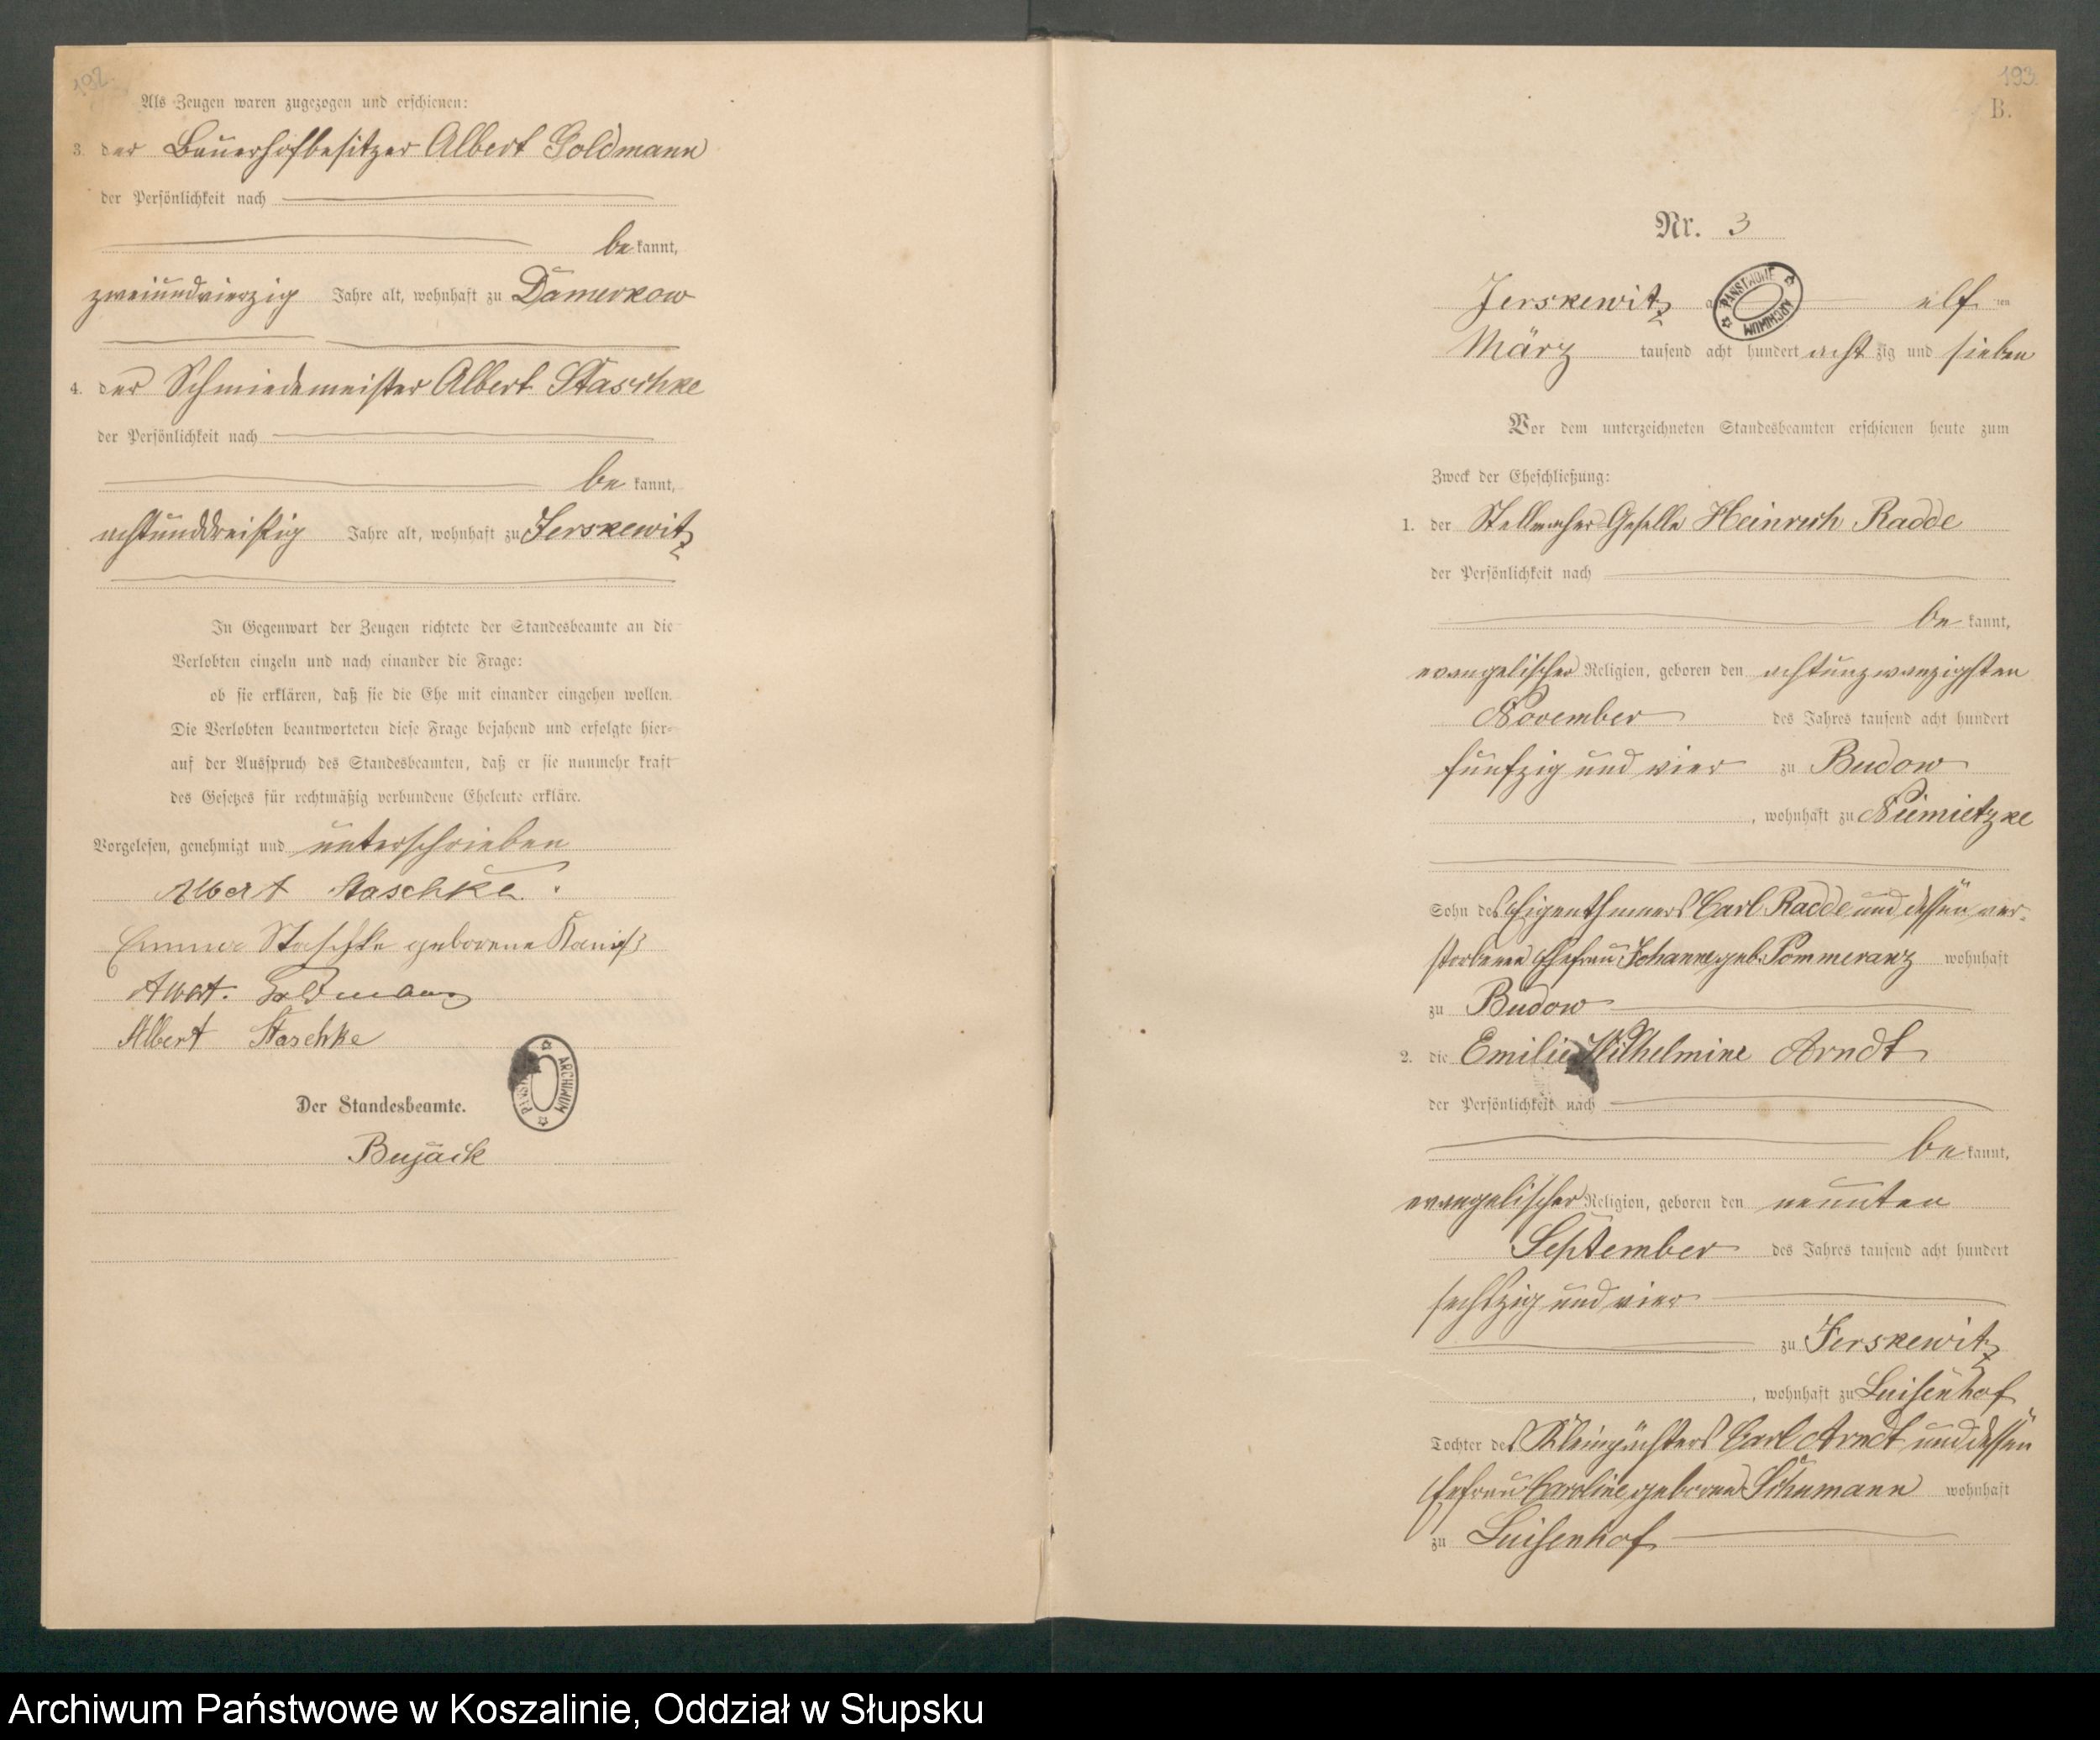 192.
Als Zeugen waren zugezogen und erschienen:
3. der Bauerhofbesitzer Albert Goldmann
der Persönlichkeit nach
be kannt,
zweiundvierzig Jahre alt, wohnhaft zu Damerkow
4. der Schmiedemeister Albert Staschke
der Persönlichkeit nach
be kannt,
achtunddreißig Jahre alt, wohnhaft zu Jerskewitz
In Gegenwart der Zeugen richtete der Standesbeamte an die
Verlobten einzeln und nach einander die Frage:
ob sie erklären, daß sie die Ehe mit einander eingehen wollen.
Die Verlobten beantworteten diese Frage bejahend und erfolgte hier-
auf der Ausspruch des Standesbeamten, daß er sie nunmehr kraft
des Gesetzes für rechtmäßig verbundene Eheleute erkläre.
Vorgelesen, genehmigt und unterschrieben
Albert Staschke.
Emma Staschke geborene
Albert. Goldmann
Albert Staschke
ARCHIWUM
Der Standesbeamte.
Bujack
193.
B.
Nr. 3
Jerskewitz elf ten
PAŃSTWOWE ARCHIWUM
März tausend acht hundert acht zig und sieben
Vor dem unterzeichneten Standesbeamten erschienen heute zum
Zweck der Eheschließung:
1. der Stellmacher Geselle Heinrich Radde
der Persönlichkeit nach
be kannt,
evangelischer Religion, geboren den achtunzwanzigsten
November des Jahres tausend acht hundert
funfzig und vier zu Budow
, wohnhaft zu Niemietzke
Sohn des Eigenthumers Carl Radde und dessen ver-
storbenen Ehefrau Johanne geb. Pommeranz wohnhaft
zu Budow
2. die Emilie Wilhelmine Arndt
der Persönlichkeit nach
be kannt,
evangelischer Religion, geboren den neunten
September des Jahres tausend acht hundert
sechszig und vier
zu Jerskewitz
, wohnhaft zu Luisenhof
Tochter des Kleinpächters Carl Arndt und dessen
Ehefrau Caroline geborene Schumann wohnhaft
zu Luisenhof
Archiwum Państwowe w Koszalinie, Oddział w Słupsku